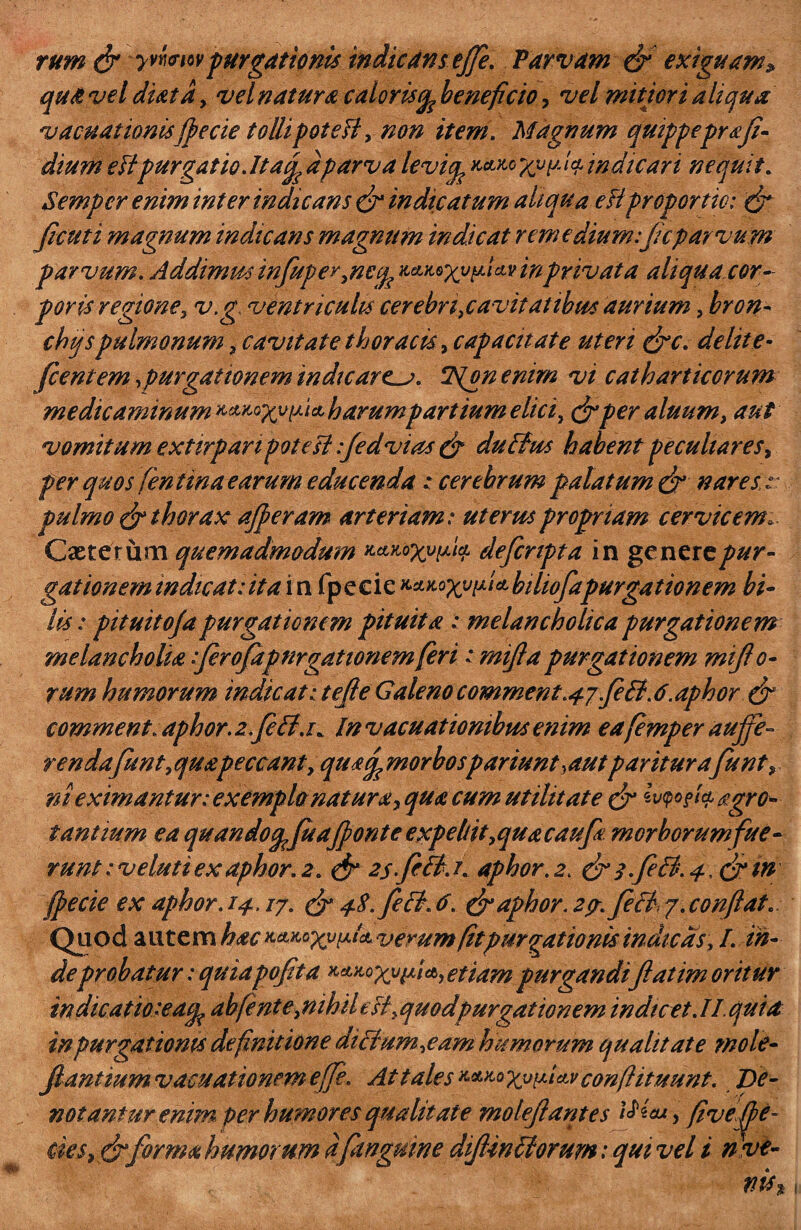 rum & γνήσιον purgationis indicans eſſe. Parvam & exiguam,
quæ vel diætâ, vel naturæ calorisq́ue beneficio, vel mitiori aliqua
vacuationis ſpecie tolli poteſt, non item. Magnum quippe præſi-
dium eſt purgatio. Itaq́ue à parva leviq́ue κακοχυμίᾳ indicari nequit.
Semper enim inter indicans & indicatum aliqua eſt proportio: &
ſicuti magnum indicans magnum indicat remedium: ſic parvum
parvum. Addimus inſuper, neq́ue κακοχυμίαν in privata aliqua cor-
poris regione, v. g. ventriculis cerebri, cavitatibus aurium, bron-
chijs pulmonum, cavitate thoracis, capacitate uteri &c. delite-
ſcentem, purgationem indicare. Non enim vi catharticorum
medicaminum κακοχυμία harum partium elici, & per aluum, aut
vomitum extirpari poteſt: ſed vias & ductus habent peculiares,
per quos ſentina earum educenda: cerebrum palatum & nares:
pulmo & thorax aſperam arteriam: uterus propriam cervicem.
Cæterùm quemadmodum κακοχυμίᾳ deſcripta in genere pur-
gationem indicat: ita in ſpecie κακοχυμία bilioſa purgationem bi-
lis: pituitoſa purgationem pituitæ: melancholica purgationem
melancholiæ: ſeroſa purgationem ſeri: miſta purgationem miſto-
rum humorum indicat: teſte Galeno comment. 47. ſect. 6. aphor &
comment. aphor. 2. ſect. 1. In vacuationibus enim ea ſemper auffe-
renda ſunt, quæ peccant, quæq́ue morbos pariunt, aut paritura ſunt,
ni eximantur: exemplo naturæ, quæ cum utilitate & εὐφορίᾳ ægro-
tantium ea quandoq́ue ſua ſponte expellit, quæ cauſæ morborum fue-
runt: veluti ex aphor. 2. & 25. ſect. 1. aphor. 2. & 3. ſect. 4. & in
ſpecie ex aphor. 14. 17. & 48. ſect. 6. & aphor. 29. ſect. 7. conſtat.
Quod autem hæc κακοχυμία verum ſit purgationis indicãs, I. in-
de probatur: quia poſita κακοχυμίᾳ, etiam purgandi ſtatim oritur
indicatio: eaq́ue abſente, nihil eſt, quod purgationem indicet. II. quia
in purgationis definitione dictum, eam humorum qualitate mole-
ſtantium vacuationem eſſe. At tales κακοχυμίαν conſtituunt. De-
notantur enim per humores qualitate moleſtantes ἰδέαι, ſive ſpe-
cies, & formæ humorum à ſanguine diſtinctorum: qui vel i n ve-
nis,